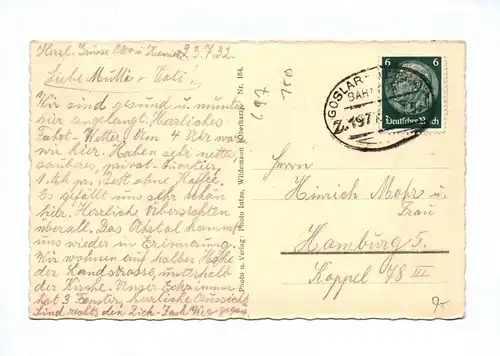 Herzl. Grüsse Otto u.
23.7.32
Liebe Mutti + Vati!
Wir sind gesund u. munter
hier angelangt. Herrliches
Fahrt-Wetter. Um 4 Uhr war
wir hier. Haben sehr nettes
sauberes, privat-Quartier
1.- pr. Bett ohne Kaffee.
Es gefällt uns sehr schön
hier. Herrliche Übersichten
überall. Das Okertal kommt
uns wieder in Erinnerung.
Wir wohnen auf halber Höhe
der Landstrasse, unterhalb
der Kirche. Unser Eckzimmer
hat 3 Fenster, herrliche Aussicht.
Sind rechts den Zick-Zack Weg gegan.
Photo u. Verlag: Photo Intze, Wildemann (Oberharz). Nr. 184.
697
150
GOSLAR-
BAH
Z.197
6 6
Deutsches Reich
Herrn
Hinrich Mohr u.
Frau
Hamburg 5.
Koppel 78 III